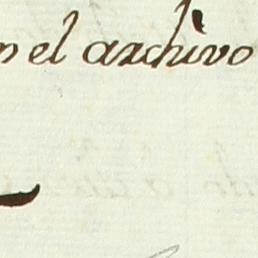 n el archivo